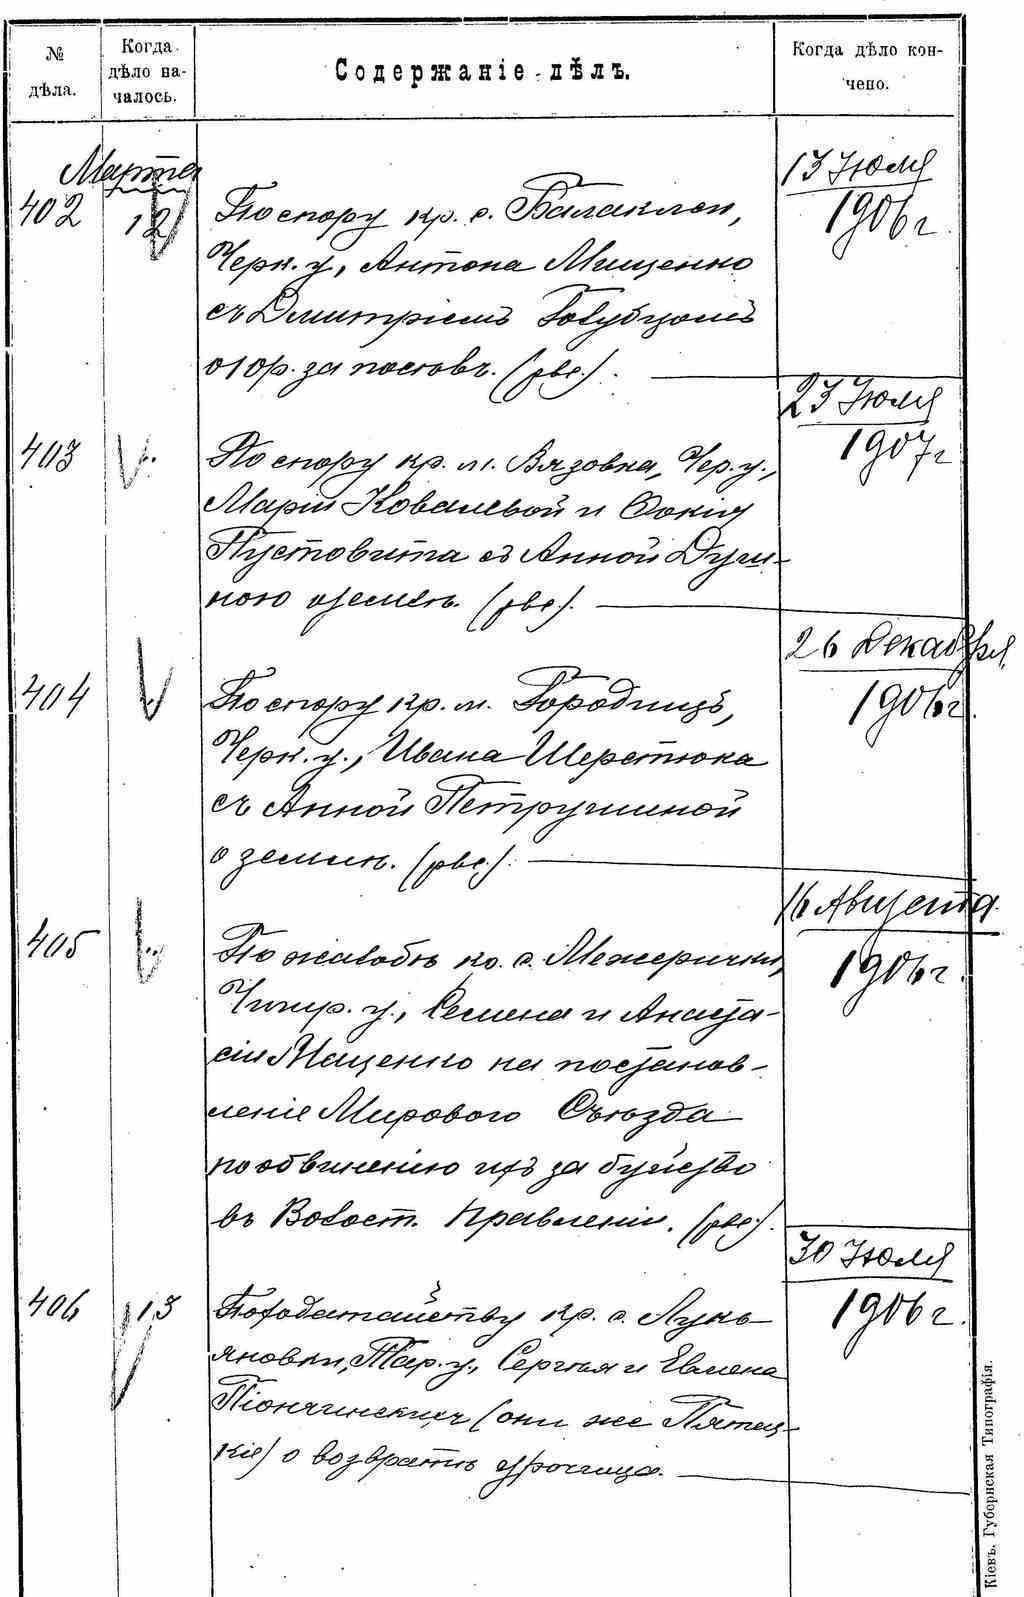 № дѣла.
Когда дѣло началось.
Содержаніе дѣлъ.
Когда дѣло кончено.
Марта
402
12
По спору кр. с. Балаклеи,
Черк. у., Антона Мищенко
съ Дмитріемъ Голубцомъ
о пост. (рве.).
13 Іюля
1906 г.
403
По спору кр. м. Вязовка, Чер. у.,
Маріи Ковалевой и Фокія
Пустовита съ Анной Дуги-
ною о землѣ. (рве.).
23 Іюля
1907 г
404
По спору кр. м. Городищъ,
Черк. у., Ивана Шерстюка
съ Анной Петрушиной
о землѣ. (рве.).
26 Декабря
1906 г.
405
По жалобѣ кр. с. Межерички,
Чигир. у., Семена и Анаста-
сіи Мащенко на постанов-
леніе Мирового Съѣзда
по обвиненію ихъ за буйство
въ Волост. Правленіи. (рве.).
16 Августа
1906 г.
406
13
По ходатайству кр. с. Лукь
яновки, Тар. у., Сергѣя и Евмена
Піончинскихъ (они же Пятец-
кіе) о возвратѣ урочища.
30 Іюля
1906 г.
Кіевъ. Губернская Типографія.